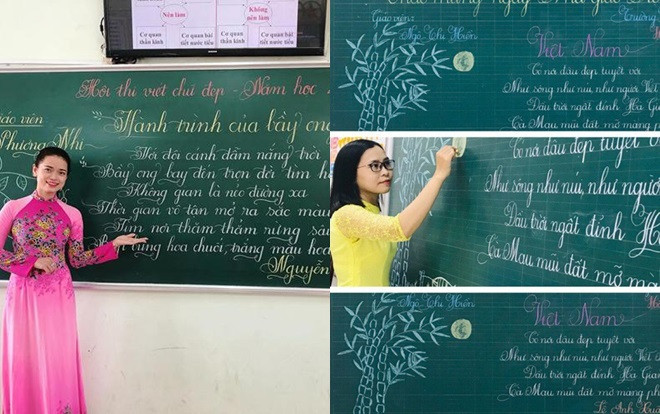 Nên làm
Không nên làm
Cơ quan thần kinh
Cơ quan bài tiết nước tiểu
Cơ quan thần kinh
Cơ quan bài tiết nước tiểu
Hội thi viết chữ đẹp - Năm học
Giáo viên
Phương Nhi
Hành trình của bầy ong
Với đôi cánh đẫm nắng trời
Bầy ong bay đến trọn đời tìm h
Không gian là nẻo đường xa
Thời gian vô tận mở ra sắc màu
Tìm nơi thăm thẳm rừng sâ
Bập bùng hoa chuối trắng màu hoa
Nguyễn
Chào mừng ngày Nhà giáo
Giáo viên:
Ngô Thị Miên
Trường
Việt Nam
Có nơi đâu đẹp tuyệt vời
Như sông như núi, như người Việt
Đầu trời ngất đỉnh Hà Gia
Cà Mau mũi đất mỡ màng ph
Có nơi đâu đẹp tuyệt v
Như sông như núi, như người
Đầu trời ngất đỉnh H
Cà Mau mũi đất mỡ mà
Ngô Thị Miên
Việt Nam
Có nơi đâu đẹp tuyệt vời
Như sông như núi, như người Việt
Đầu trời ngất đỉnh Hà Gian
Cà Mau mũi đất mỡ màng ph
Lê Anh Xuâ